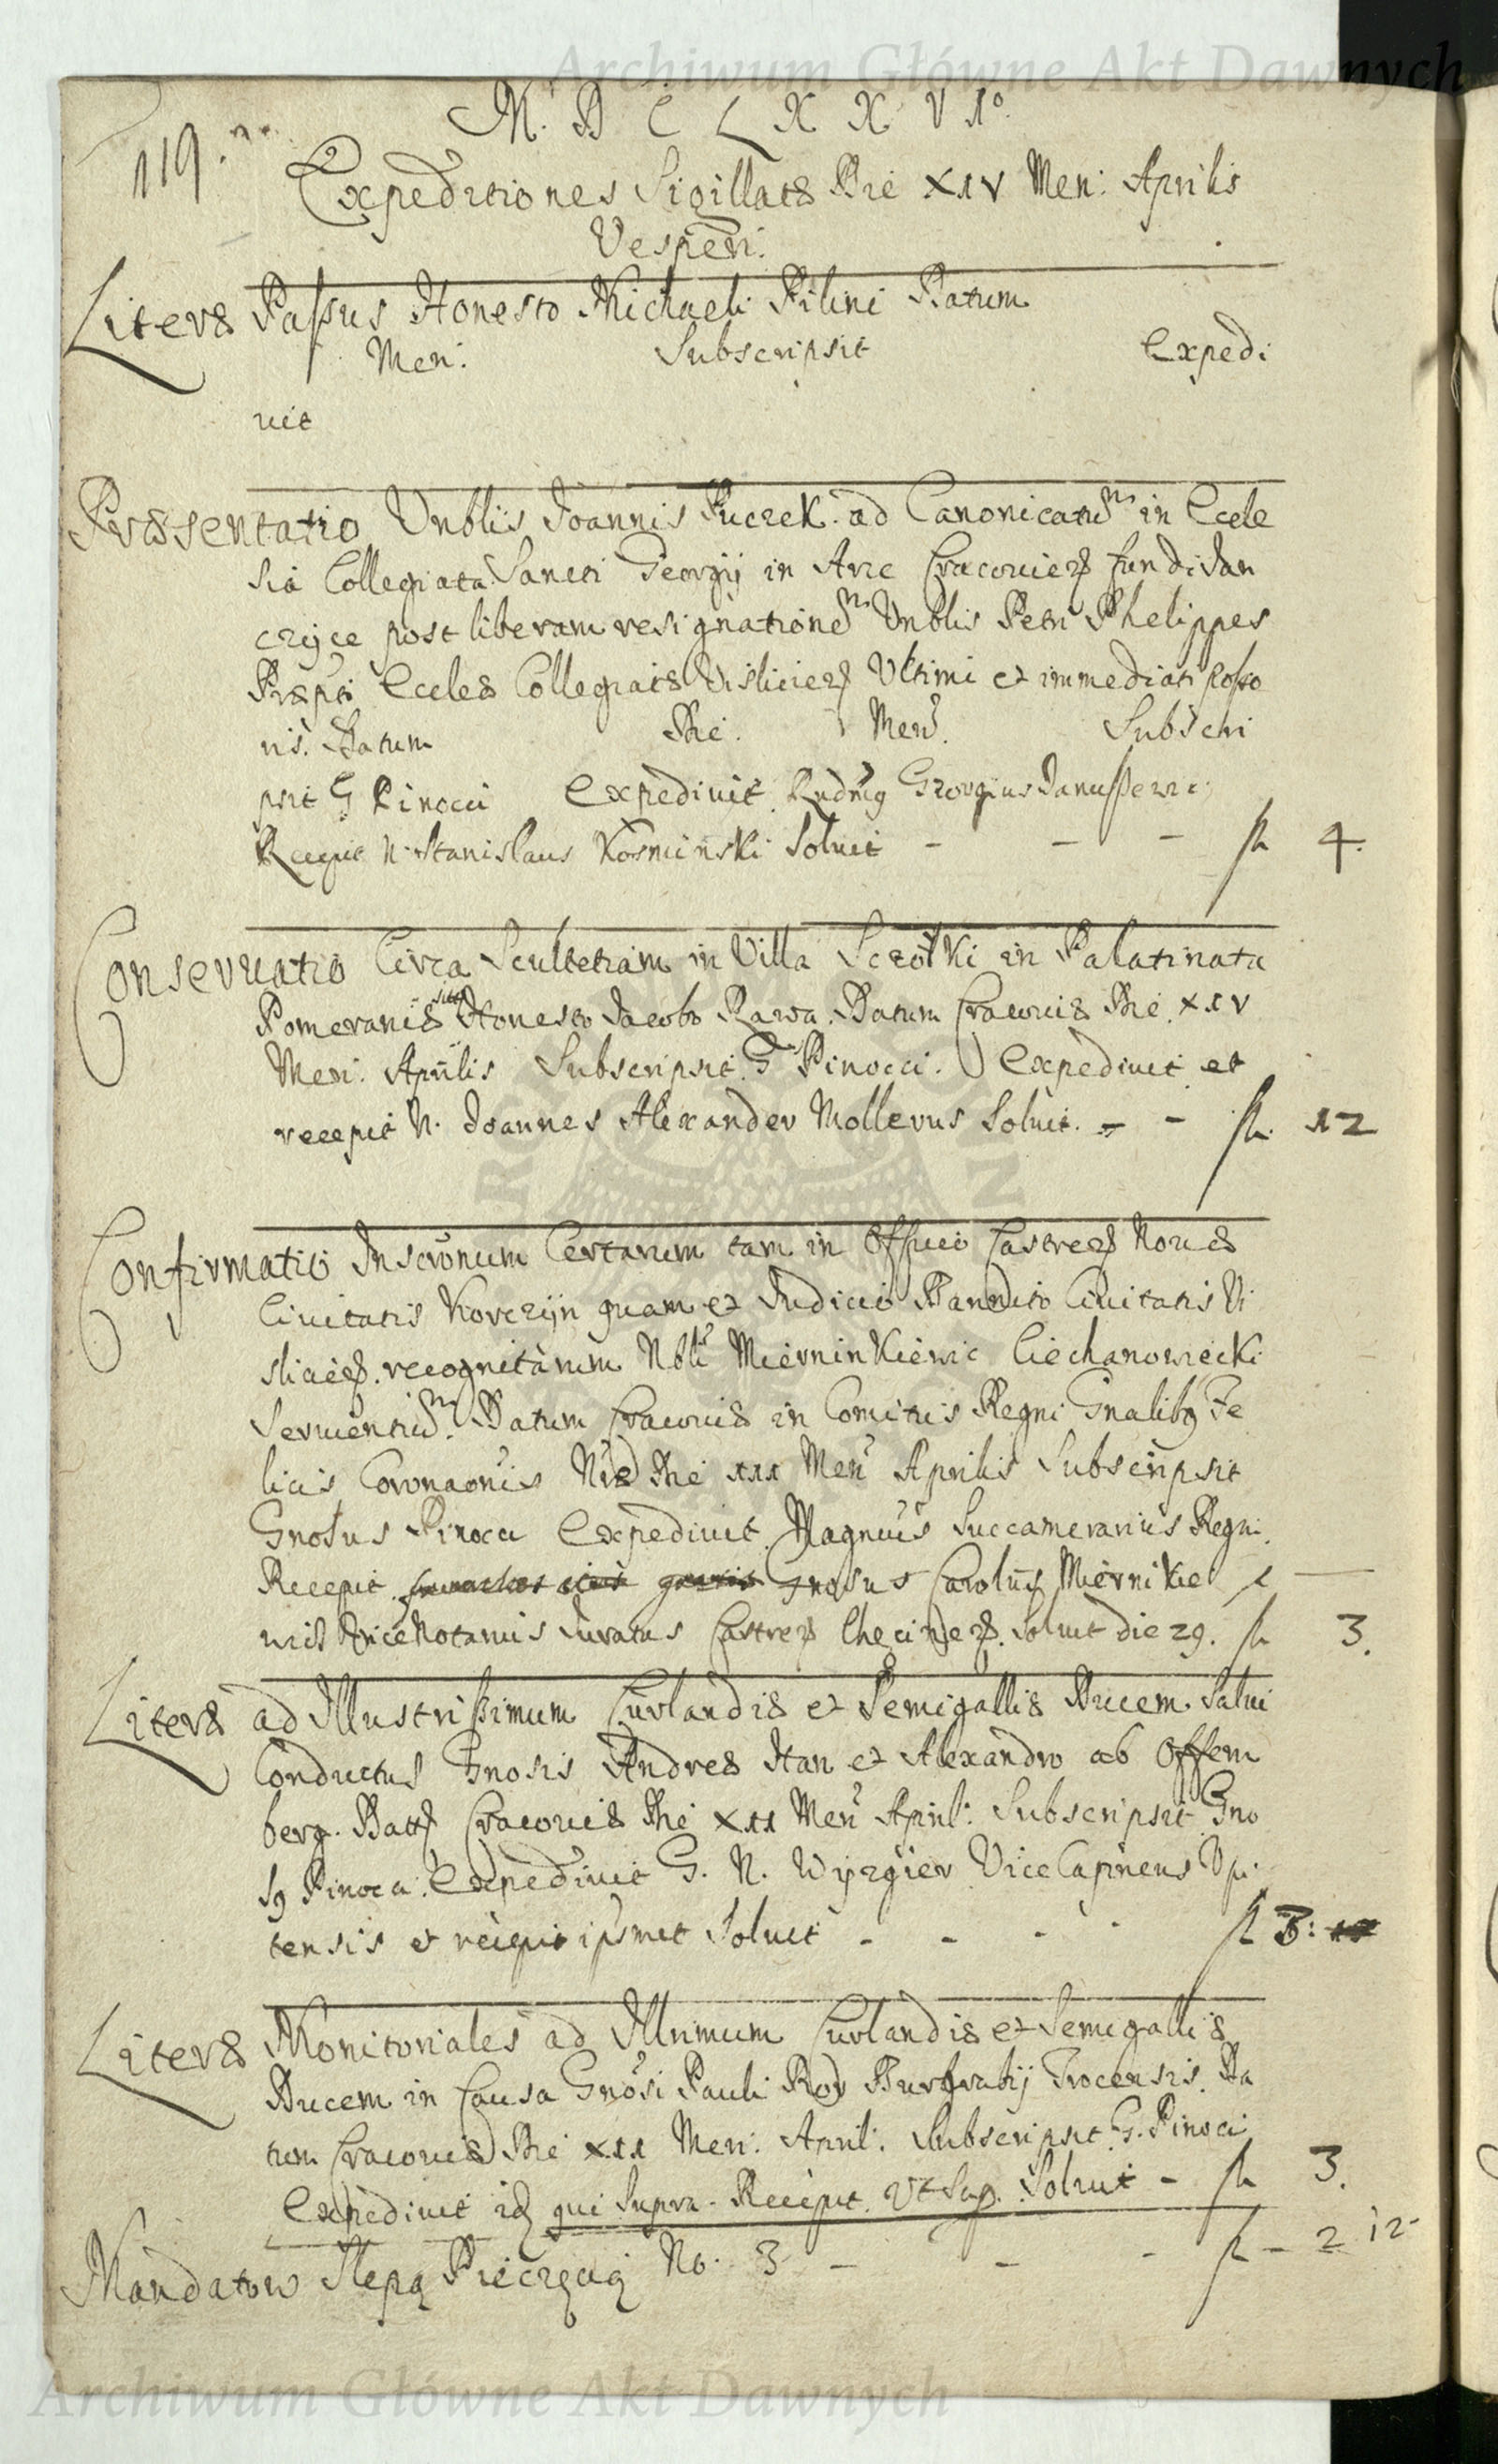 Archiwum Główne Akt Dawnych
M. D C L X X V I°.
119.
Expeditiones Sigillatæ Die XIV Men: Aprilis
Vesperi.
Literæ Passus Honesto Michaeli Pilini Datum
Men: Subscripsit Expedi
vit
Præsentatio Vnblis Joannis Puczek ad Canonicatum in Eccle
sia Collegiata Sancti Georgij in Arce Cracovien fundi Dan
czijce post liberam resignationem Vnblis Petri Phelippes
Præpti Eccles Collegiatæ Vislicien Vltimi et immediati posso
ris. Datum Die. Men. Subscri
psit G Pinocci Expedivit Rndus Georgius Janussewic
Recepit N. Stanislaus Kosminski Solvit - - - fl 4.
Conservatio Circa Scultetiam in Villa Sczotki in Palatinatu
Pomeraniæ sita Honesto Jacobo Rawa. Datum Cracoviæ Die XIV
Men: Aprilis Subscripsit G Pinocci. Expedivit et
recepit N. Joannes Alexander Mollerus Solvit. - - fl. 12
Confirmatio Inscronum Certarum tam in Officio Castren Novæ
Civitatis Korczijn quam et Judicio Bannito Civitatis Vi
slicien. recognitarum Nbli Mierninkiewic Ciechanowiecki
Servientium. Datum Cracoviæ in Comitiis Regni Gnalibus Fe
licis Coronaonis Nræ Die III Men Aprilis Subscripsit
Gnosus Pinocci Expedivit Magnus Succamerarius Regni.
Recepit Gnosus Carolus Miernikie
wic ViceNotarius Juratus Castren Checinen. Solvit die 29. fl 3.
Literæ ad Illustrissimum Curlandiæ et Semigalliæ Ducem Salvi
Conductus Gnosis Andreæ Itan et Alexandro ab Offem
berg. Datt Cracoviæ Die XII Men April: Subscripsit Gno
sus Pinocci. Expedivit G. N. Wijzgier Vice Capineus Upi
tensis et recepit ipsmet Solvit - - - fl 3:
Literæ Monitoriales ad Illmimum Curlandiæ et Semigalliæ
Ducem in Causa Gnosi Pauli Rod Burgrabij Trocensis. Da
tum Cracoviæ Die XII Men: April: Subscripsit G. Pinocci
Expedivit idq qui Supra. Recepit Vt Sup. Solvit - fl 3.
Mandatow Slepą Pieczęcią No. 3 - - - fl - 2 12-
Archiwum Główne Akt Dawnych